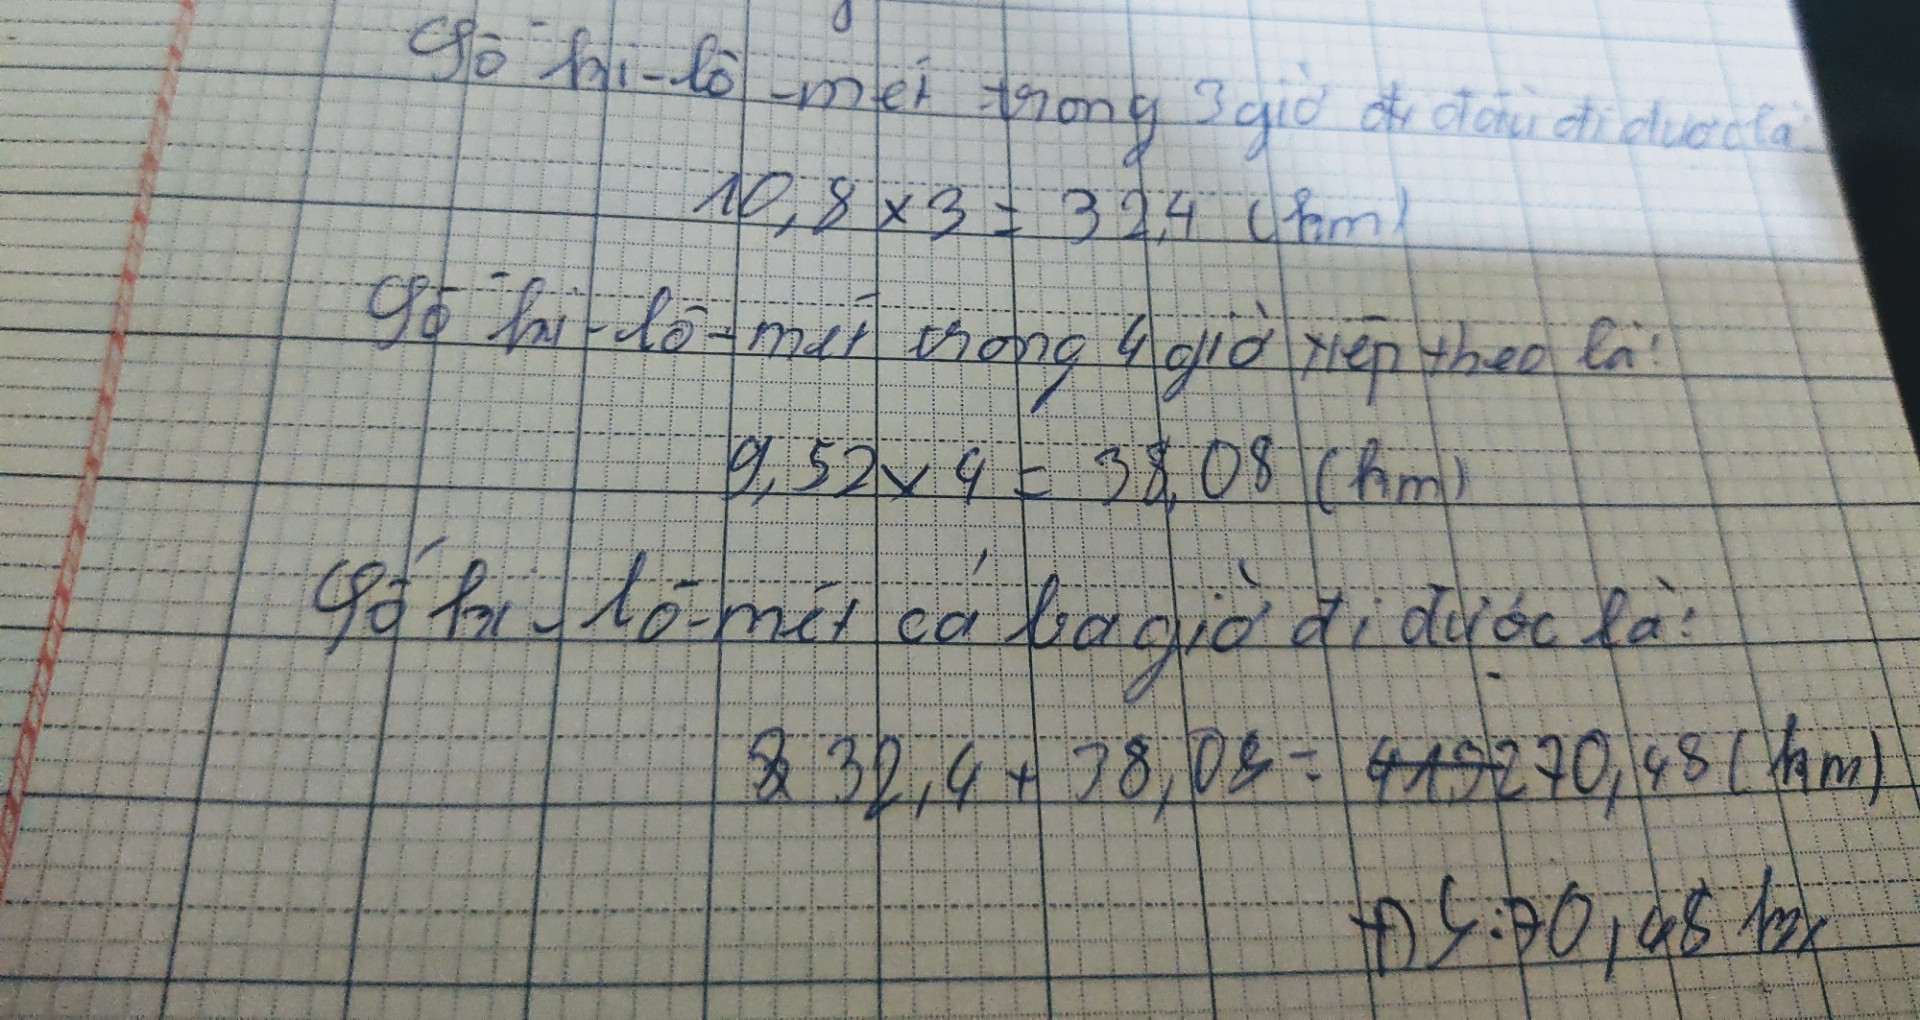 Số ki-lô-mét trong 3 giờ đi đầu đi được là:
10,8 x 3 = 32,4 (km)
Số ki-lô-mét trong 4 giờ tiếp theo là:
9,52 x 4 = 38,08 (km)
Số ki-lô-mét cả ba giờ đi được là:
32,4 + 38,08 = 70,48 (km)
ĐS: 70,48 km